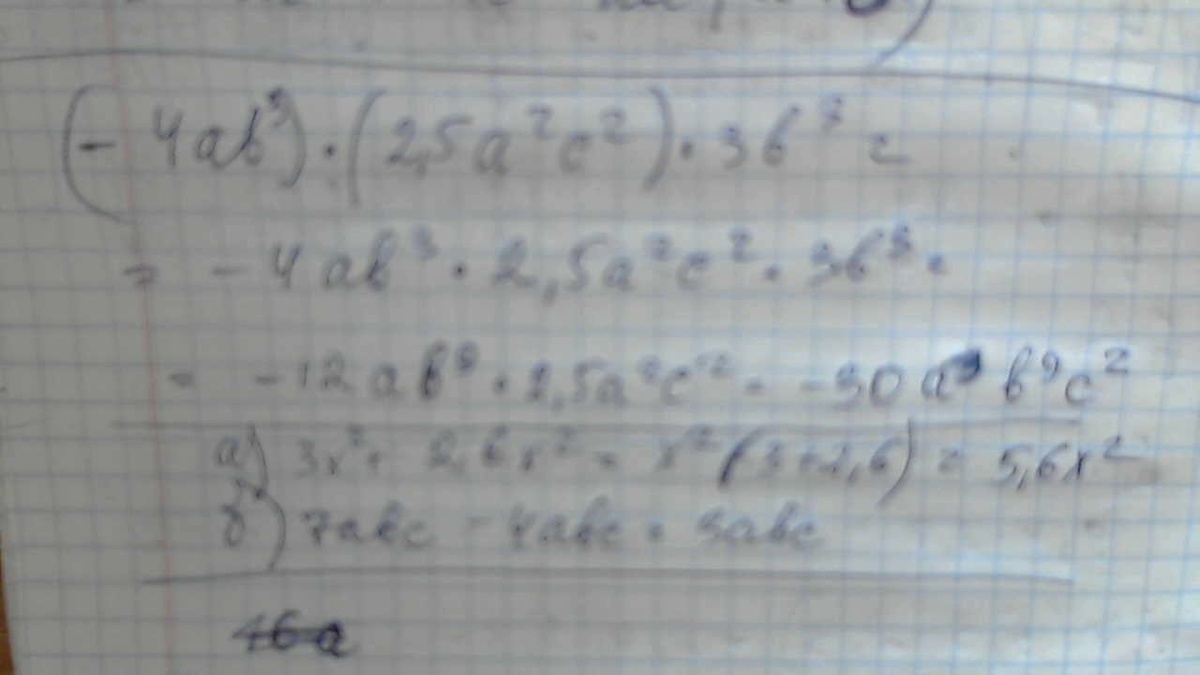 (-4ab³)·(2,5a²c²)·3b³ =
= -4ab³·2,5a²c²·3b³ =
= -12ab⁹·2,5a²c² = -30a³b⁹c²
а) 3x²+2,6x² = x²(3+2,6) = 5,6x²
б) 7abc - 4abc = 3abc